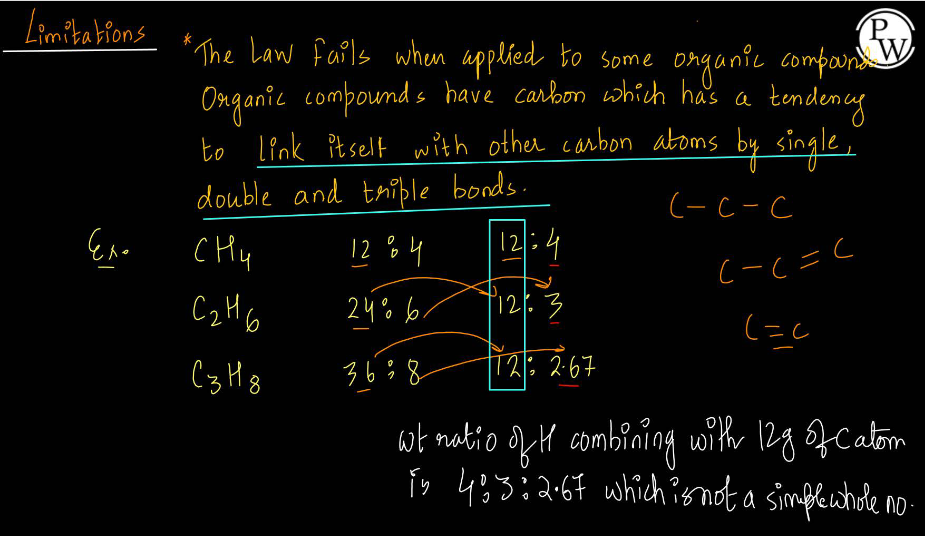 Limitations
PW
* The Law fails when applied to some organic compounds.
Organic compounds have carbon which has a tendency
to link itself with other carbon atoms by single,
double and triple bonds.
C-C-C
Ex. CH4 12:4 12:4
C-C=C
C2H6 24:6 12:3
C≡C
C3H8 36:8 12:2.67
wt ratio of H combining with 12g of C atom
is 4:3:2.67 which is not a simple whole no.